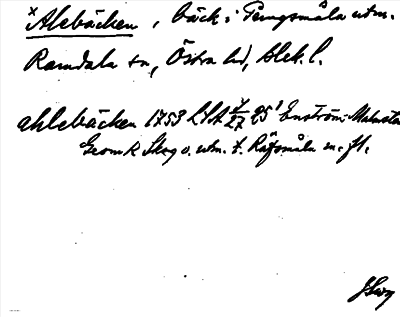 x Alebäcken, bäck i Pengsmåla utm.
Ramdala sn, Östra hd, Blek. l.
ahlebäcken 1753 LSA 7/27 25' Enström-Malmsten
Geom k Skog o. utm. t. Räfsmåla m. fl.